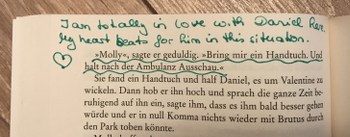 I am totally in love with Daniel her
my heart beats for him in this situation.
»Molly«, sagte er geduldig. »Bring mir ein Handtuch. Und
halt nach der Ambulanz Ausschau.«
Sie fand ein Handtuch und half Daniel, es um Valentine zu
wickeln. Dann hob er ihn hoch und sprach die ganze Zeit be-
ruhigend auf ihn ein, sagte ihm, dass es ihm bald besser gehen
würde und er in null Komma nichts wieder mit Brutus durch
den Park toben könnte.